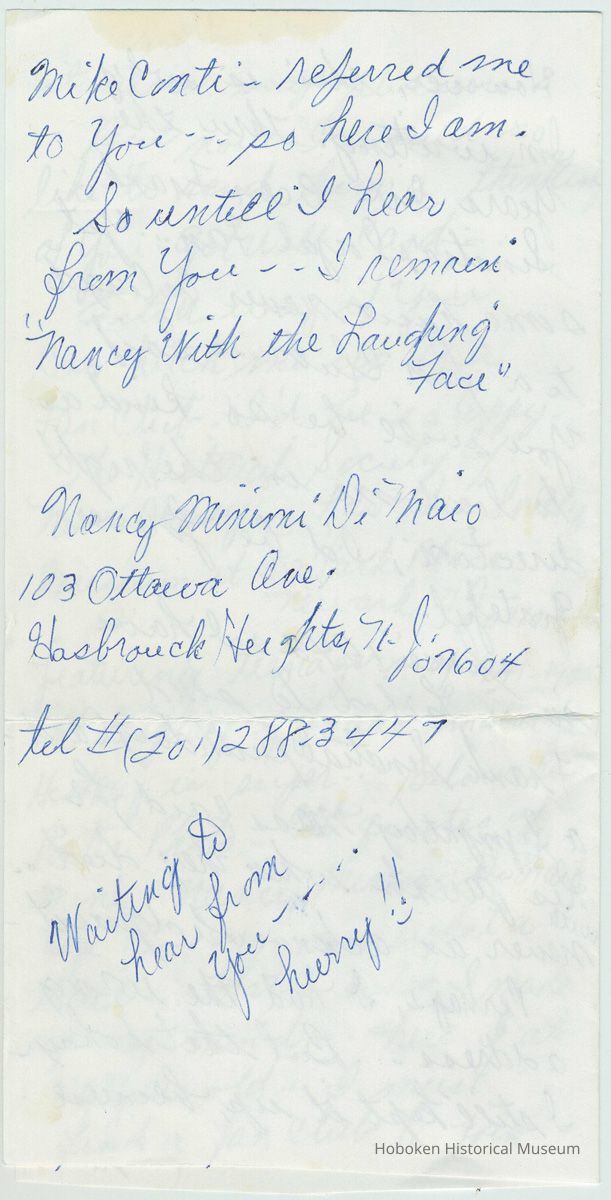 Mike Conti - referred me
to You --- so here I am.
So untill I hear
from You -- I remain
"Nancy With the Laughing
Face"
Nancy Minimi Di Maio
103 Ottawa Ave.
Hasbrouck Heights, N.J.
07604
tel # (201) 288-3447
Waiting to
hear from
you-.....
hurry!!
Hoboken Historical Museum